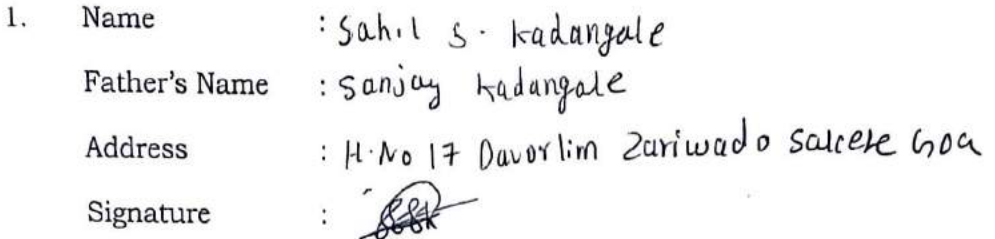 1. Name : Sahil S. Kadangale
Father's Name : Sanjay Kadangale
Address : H.No 17 Davorlim Zariwado Salcete Goa
Signature :